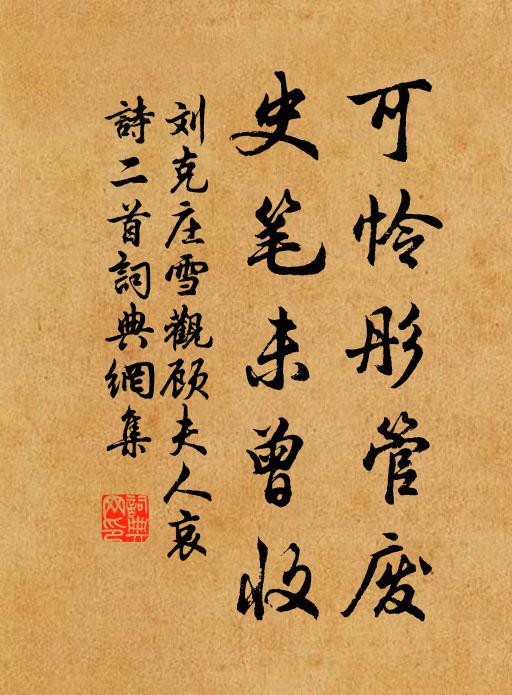 可怜彤管废
史笔未曾收
刘克庄雪觀顾夫人哀
詩二首詞典網集
詞典
网印